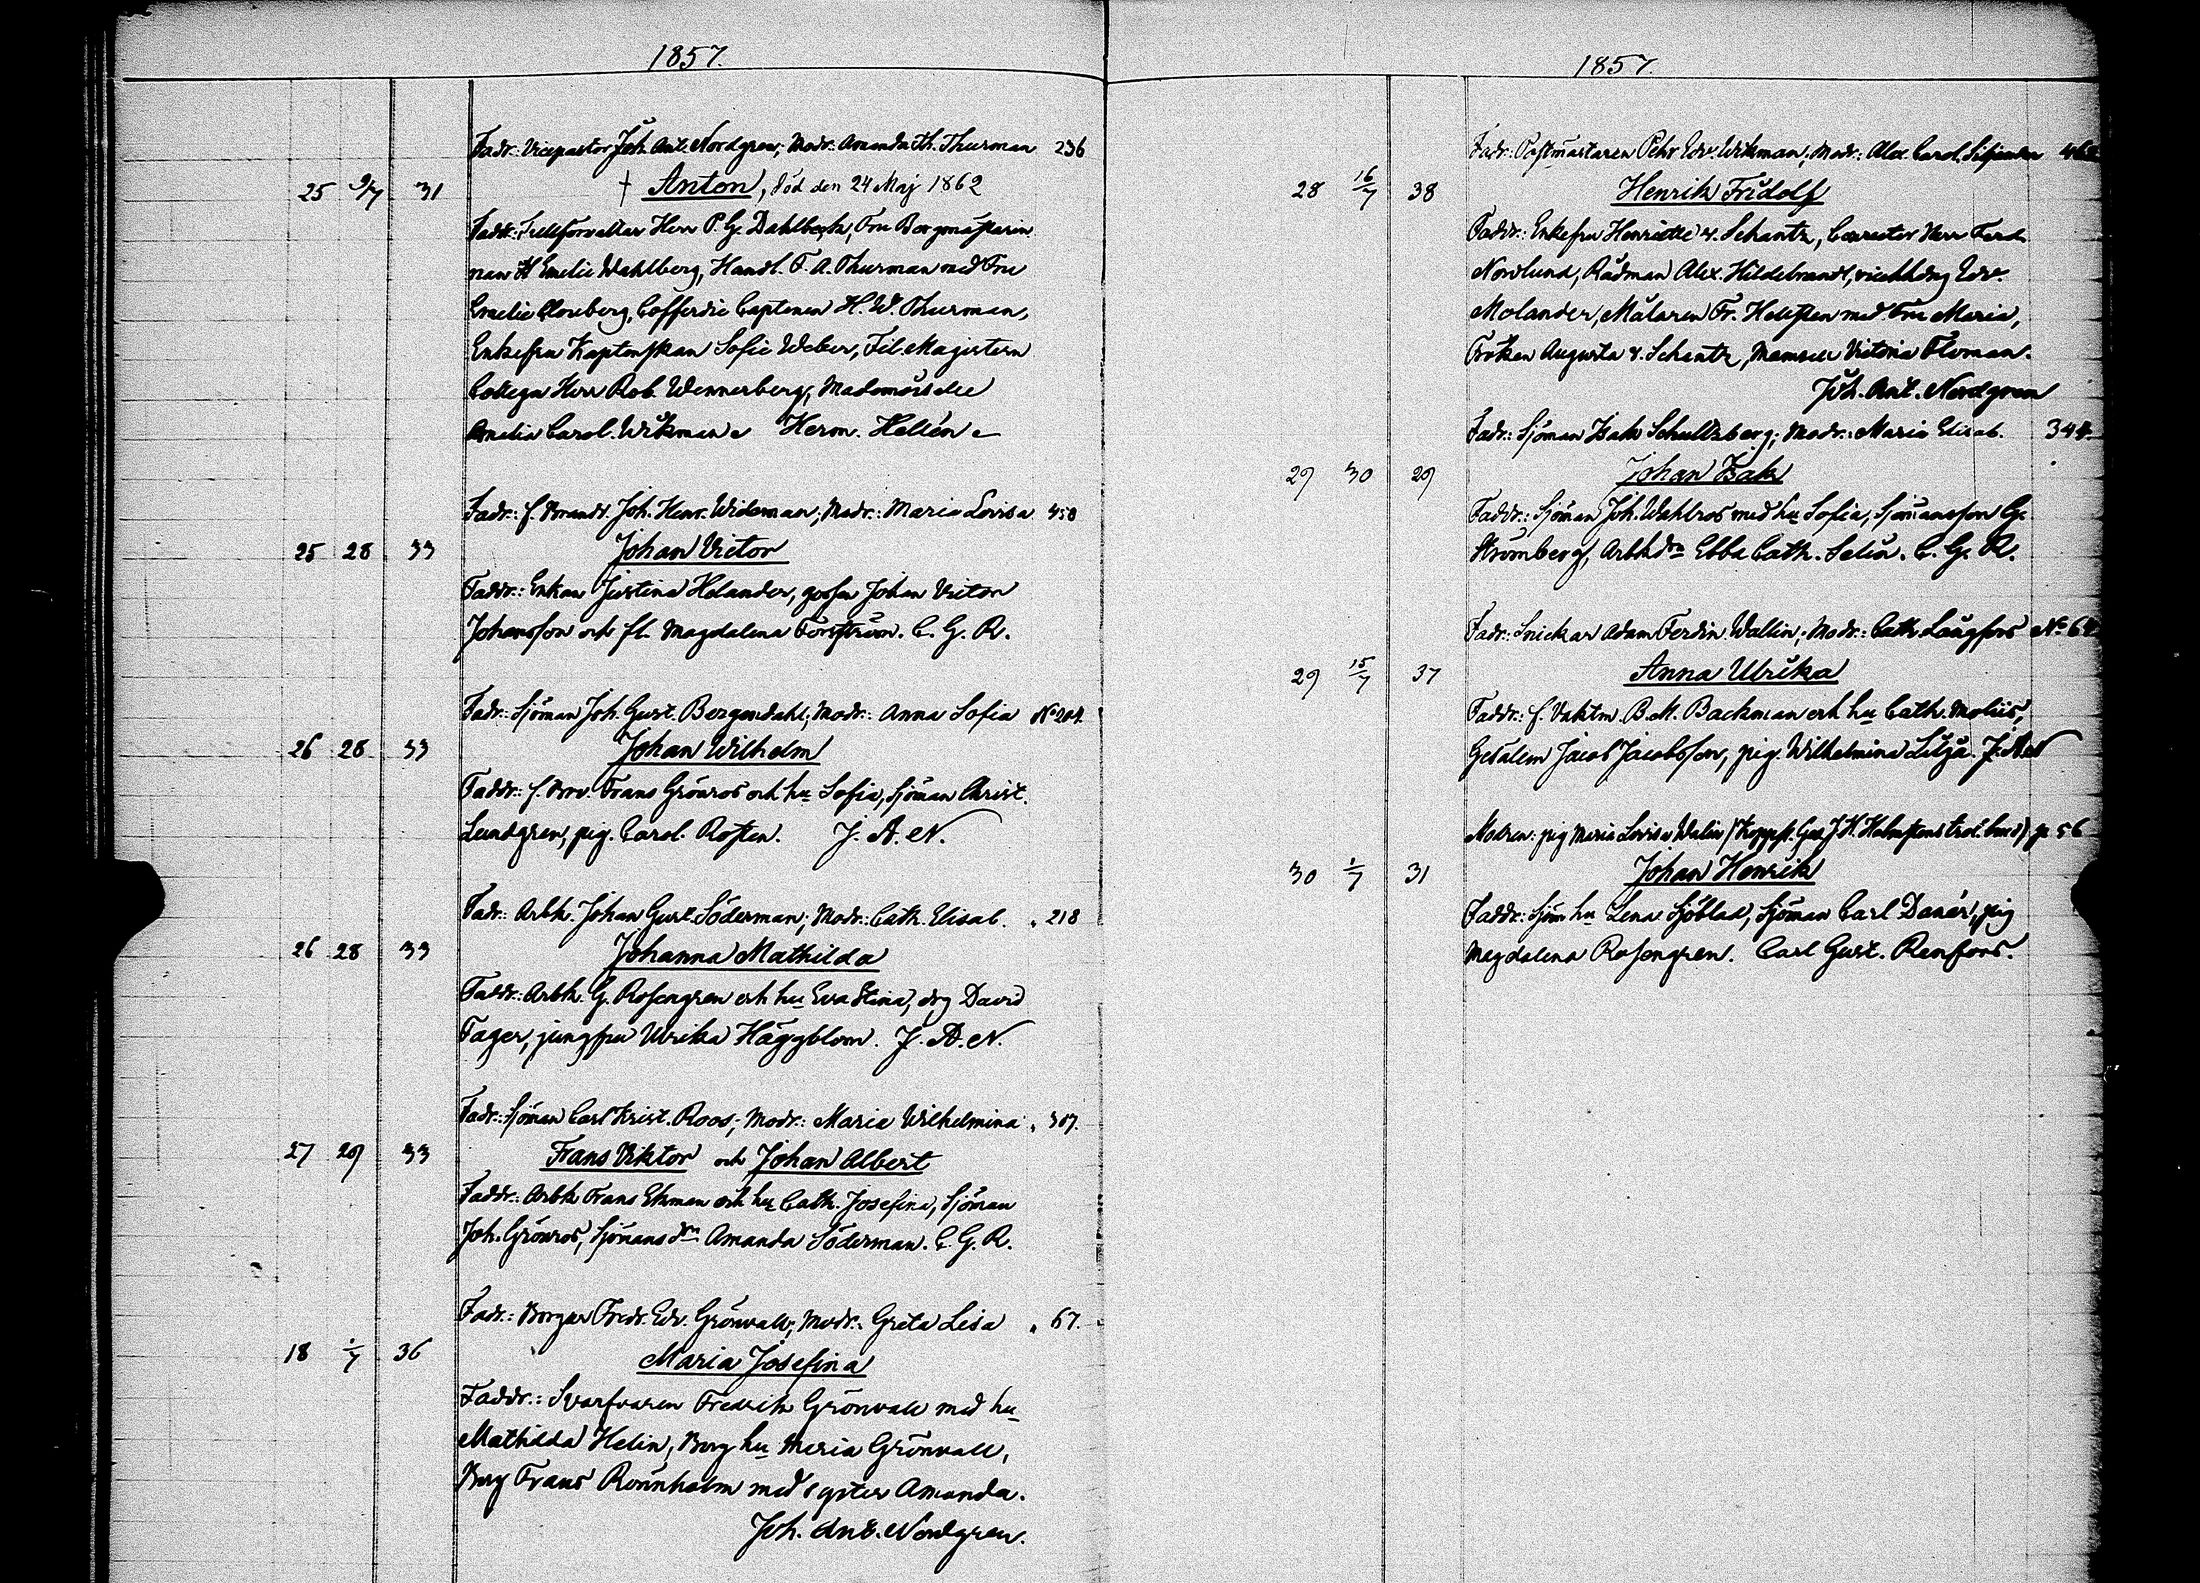 1857.
Fadr: Vicepastor Joh. Ant. Nordgren; Modr: Amanda Th. Thurman 236
25 9/7 31 † Anton, död den 24 Maj 1862
Faddr: Herr P. G. Dahlbeck, Fru Borgmästarin
nan H Emelie Wahlberg, Handl. F. A. Thurman med Fru
Emelie Clouberg, Cofferdie Captenen H. W. Thurman,
Enkefru Kaptenskan Sofie Weber, Fil. Magistern
Collega Herr Rob. Wennerberg, Mademoiselle
Amelia Carol. Wikman. Herm. Hellén.
Fadr: f. Brandv. Joh. Henr. Wideman; Modr: Maria Lovisa 458
25 28 33 Johan Victor
Faddr: Enkan Justina Helander, gossen Johan Victor
Johansson och fl. Magdalena Forsström. C. G. R.
Fadr: Sjöman Joh. Gust. Bergendahl; Modr: Anna Sofia No 204.
26 28 33 Johan Wilhelm
Faddr: f. Frans Grönros och hu Sofia, Sjöman Christ.
Lundgren, pig. Carol. Rosten. J. A. N.
Fadr: Arbk. Johan Gust. Söderman; Modr: Cath. Elisab. " 218
26 28 33 Johanna Mathilda
Faddr: Arbk. G. Rosengren och hu Eva Stina, drg David
Fager, jungfru Ulrika Häggblom. J. A. N.
Fadr: Sjöman Carl Krist. Roos; Modr: Maria Wilhelmina " 307.
27 29 33 Frans Viktor och Johan Albert
Faddr: Arbk Frans Ekman och hu Cath. Josefina, Sjöman
Joh. Grönros, Sjömans drn Amanda Söderman. C. G. R.
Fadr: Borgar Fredr. Edv. Grönvall; Modr: Greta Lisa " 67.
18 1/7 36 Maria Josefina
Faddr: Svarfvaren Fredrik Grönvall med hu
Mathilda Helin, Borg hu Maria Grönvall,
Borg Frans Rönnholm med syster Amanda.
Joh. Ant. Nordgren.
1857.
Fadr: Postmästaren Petr Edv. Wikman; Modr: Alex. Carol. 
28 16/7 38 Henrik Fridolf
Faddr: Enkefru Henriette v. Schantz, Conrector Herr Ferd.
Nordlund, Rådman Alex. Hildebrandt, Edv.
Molander, Målaren Fr. Hellsten med Fru Maria,
Fröken Augusta v. Schantz, Mamsell Victoria Floman.
Joh. Ant. Nordgren
Fadr: Sjöman Isak Schultzberg; Modr: Maria Elisab. 344.
29 30 29 Johan Isak
Faddr: Sjöman Joh. Wahlros med hu Sofia, Sjömansson G.
Strömberg, Arbkdrn Ebba Cath. Selin. C. G. R.
Fadr: Snickar Adam Ferdin. Wallin; Modr: Cath Långfors No 64
29 15/7 37 Anna Ulrika
Faddr: f. Vaktm. B. M. Backman och hu Cath. Moliis,
Gesälem Jacob Jacobsson, pig. Wilhelmina Lilja. J. A. N
Modren: pig Maria Lovisa Walin p. 56
30 1/7 31 Johan Henrik
Faddr: Sjöm hu Lena Sjöblad, Sjöman Carl Danér, pig
Magdalena Rosengren. Carl Gust. Renfors.